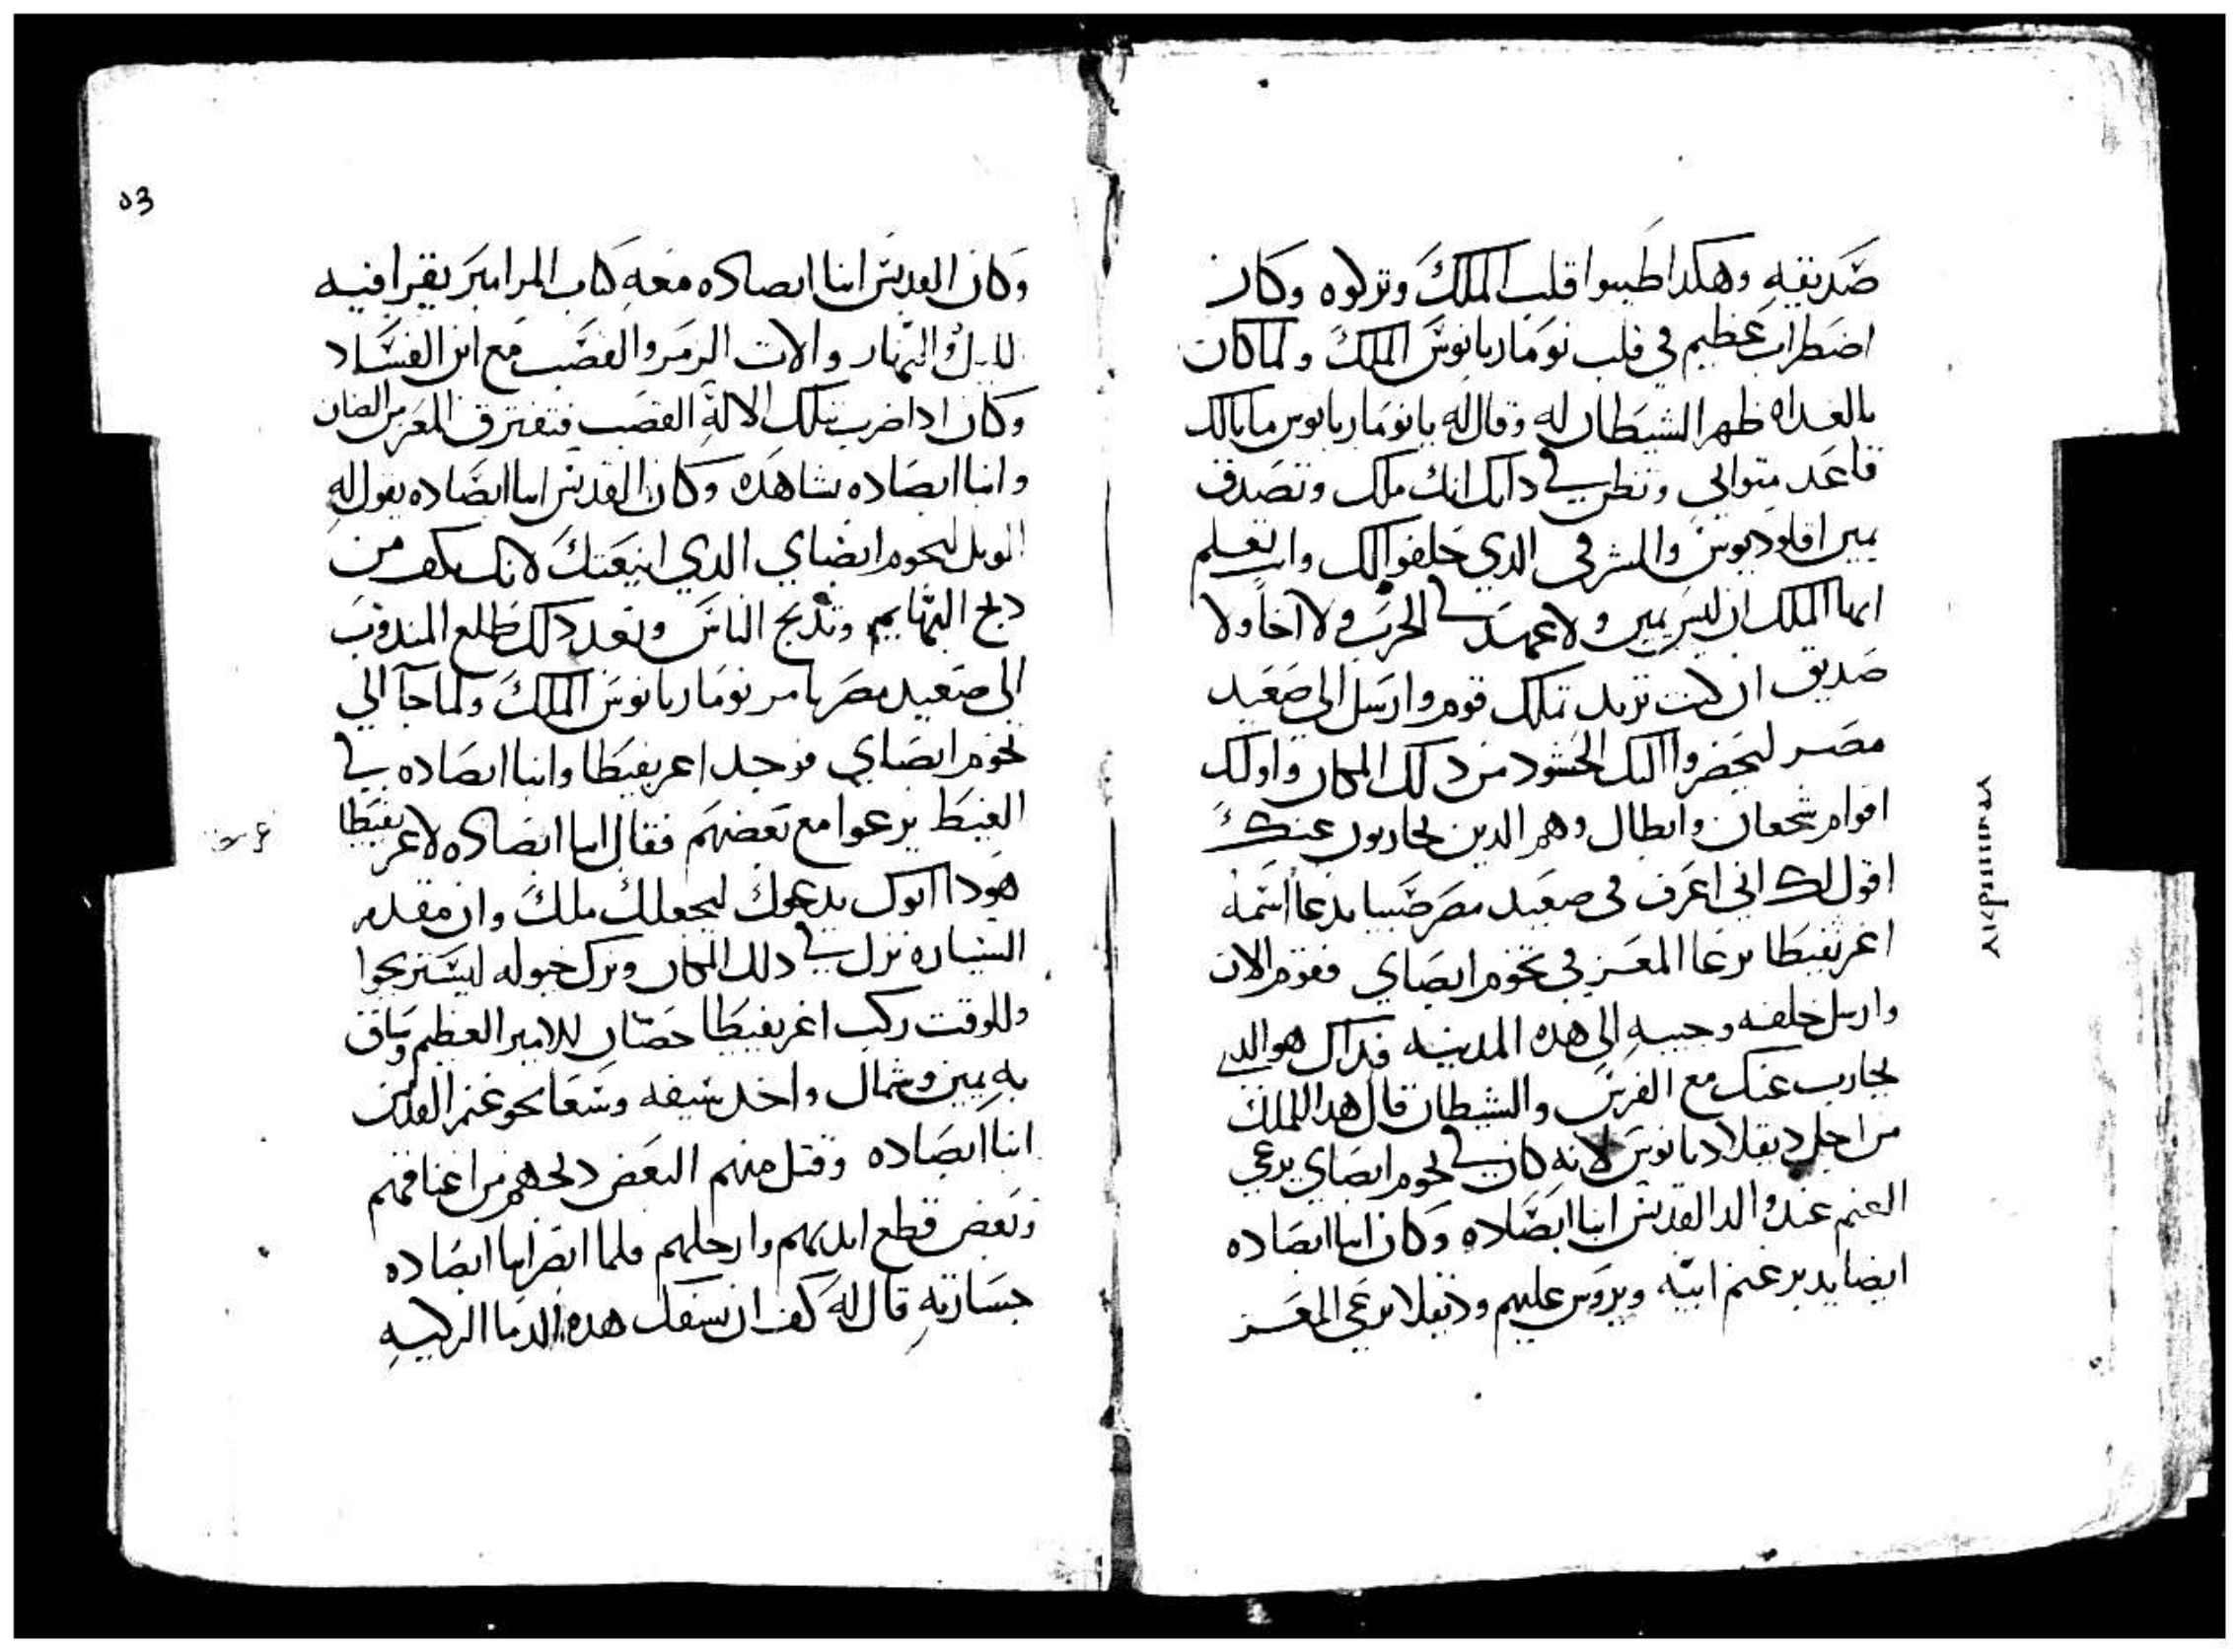 صديقه وهكدا طيبوا قلب الملك وتركوه وكان
اضطراب عظيم في قلب نوماريانوس الملك ولما كان
بالغداه ظهر الشيطان له وقال له يا نوماريانوس ما بالك
قاعد متواني وتظن في داتك انك ملك وتصدق
يمين اقلوديوس والمشرقي الدي حلفوا لك وانت تعلم
ايها الملك ان ليس يمين ولا عهد في الحرب ولا اخا ولا
صديق ان كنت تريد تملك قوم وارسل الى صعيد
مصر ليحضروا اليك الحشود من دلك المكان واوليك
اقوام شجعان وابطال وهم الدين يحاربون عنك
اقول لك اني اعرف في صعيد مصر صبيا يدعا اسمه
اغربقيطا يرعا المعز في تخوم ابصاي فقوم الان
وارسل خلفه وجيبه الى هده المدينه فداك هو الدي
يحارب عنك مع الفرس والشيطان قال هدا للملك
من اجل ديقلاديانوس لانه كان في تخوم ابصاي يرعي
الغنم عند والد القديس انبا ابصاده وكان انبا ابصاده
ايضا يدبر غنم ابيه ويروس عليهم ودقلا يرعى المعز
03
وكان القديس انبا ابصاده معه كتاب المزامير يقرا فيه
لليل والنهار والات الزمر والقصب مع ابن الفساد
وكان ادا ضرب بتلك الالة القصب فتفترق المعز من الضان
وانبا ابصاده يشاهده وكان القديس انبا ابصاده يقول له
الويل لتخوم ابصاي الدي ابتعتك لانك تكف من
دبح البهايم وتدبح الناس وبعد دلك طلع المندوب
الى صعيد مصر بامر نوماريانوس الملك ولما جا الي
تخوم ابصاي فوجد اغربقيطا وانبا ابصاده في
الغيط يرعوا مع بعضهم فقال انبا ابصاده لاغربقيطا
هودا ابوك يدعوك ليجعلك ملك وان مقدم
السياره نزل في دلك المكان وترك خيوله ليستريحوا
وللوقت ركب اغربقيطا حصان للامير العظيم وساق
به يمين وشمال واخد سيفه وسعا نحو غنم القديس
انبا ابصاده وقتل منهم البعض دبحهم من اعناقهم
وبعض قطع ايديهم وارجلهم فلما ابصر انبا ابصاده
جسارته قال له كف ان تسفك هده الدما الزكيه